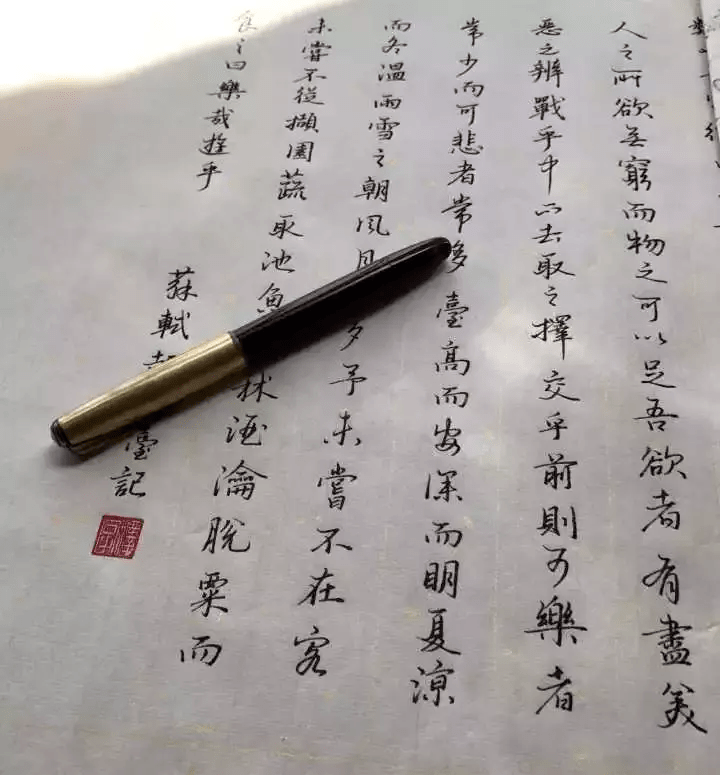 人之所欲無窮而物之可以足吾欲者有盡美
惡之辨戰乎中以去取之擇交乎前則可樂者
常少而可悲者常多臺高而安深而明夏涼
而冬溫雨雪之朝風月夕予未嘗不在客
未嘗不從擷園蔬取池魚秫酒瀹脫粟而
食之曰樂哉遊乎
蘇軾超臺記